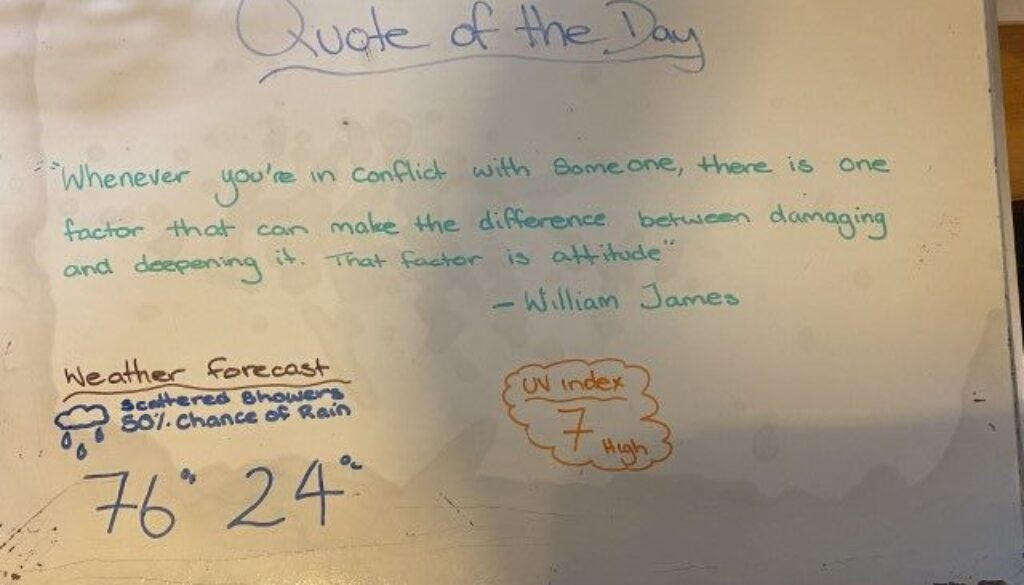 Quote of the Day
"Whenever you're in conflict with someone, there is one
factor that can make the difference between damaging
and deepening it. That factor is attitude"
- William James
Weather Forecast
Scattered Showers
50% Chance of Rain
76° 24°c
UV index
7
High